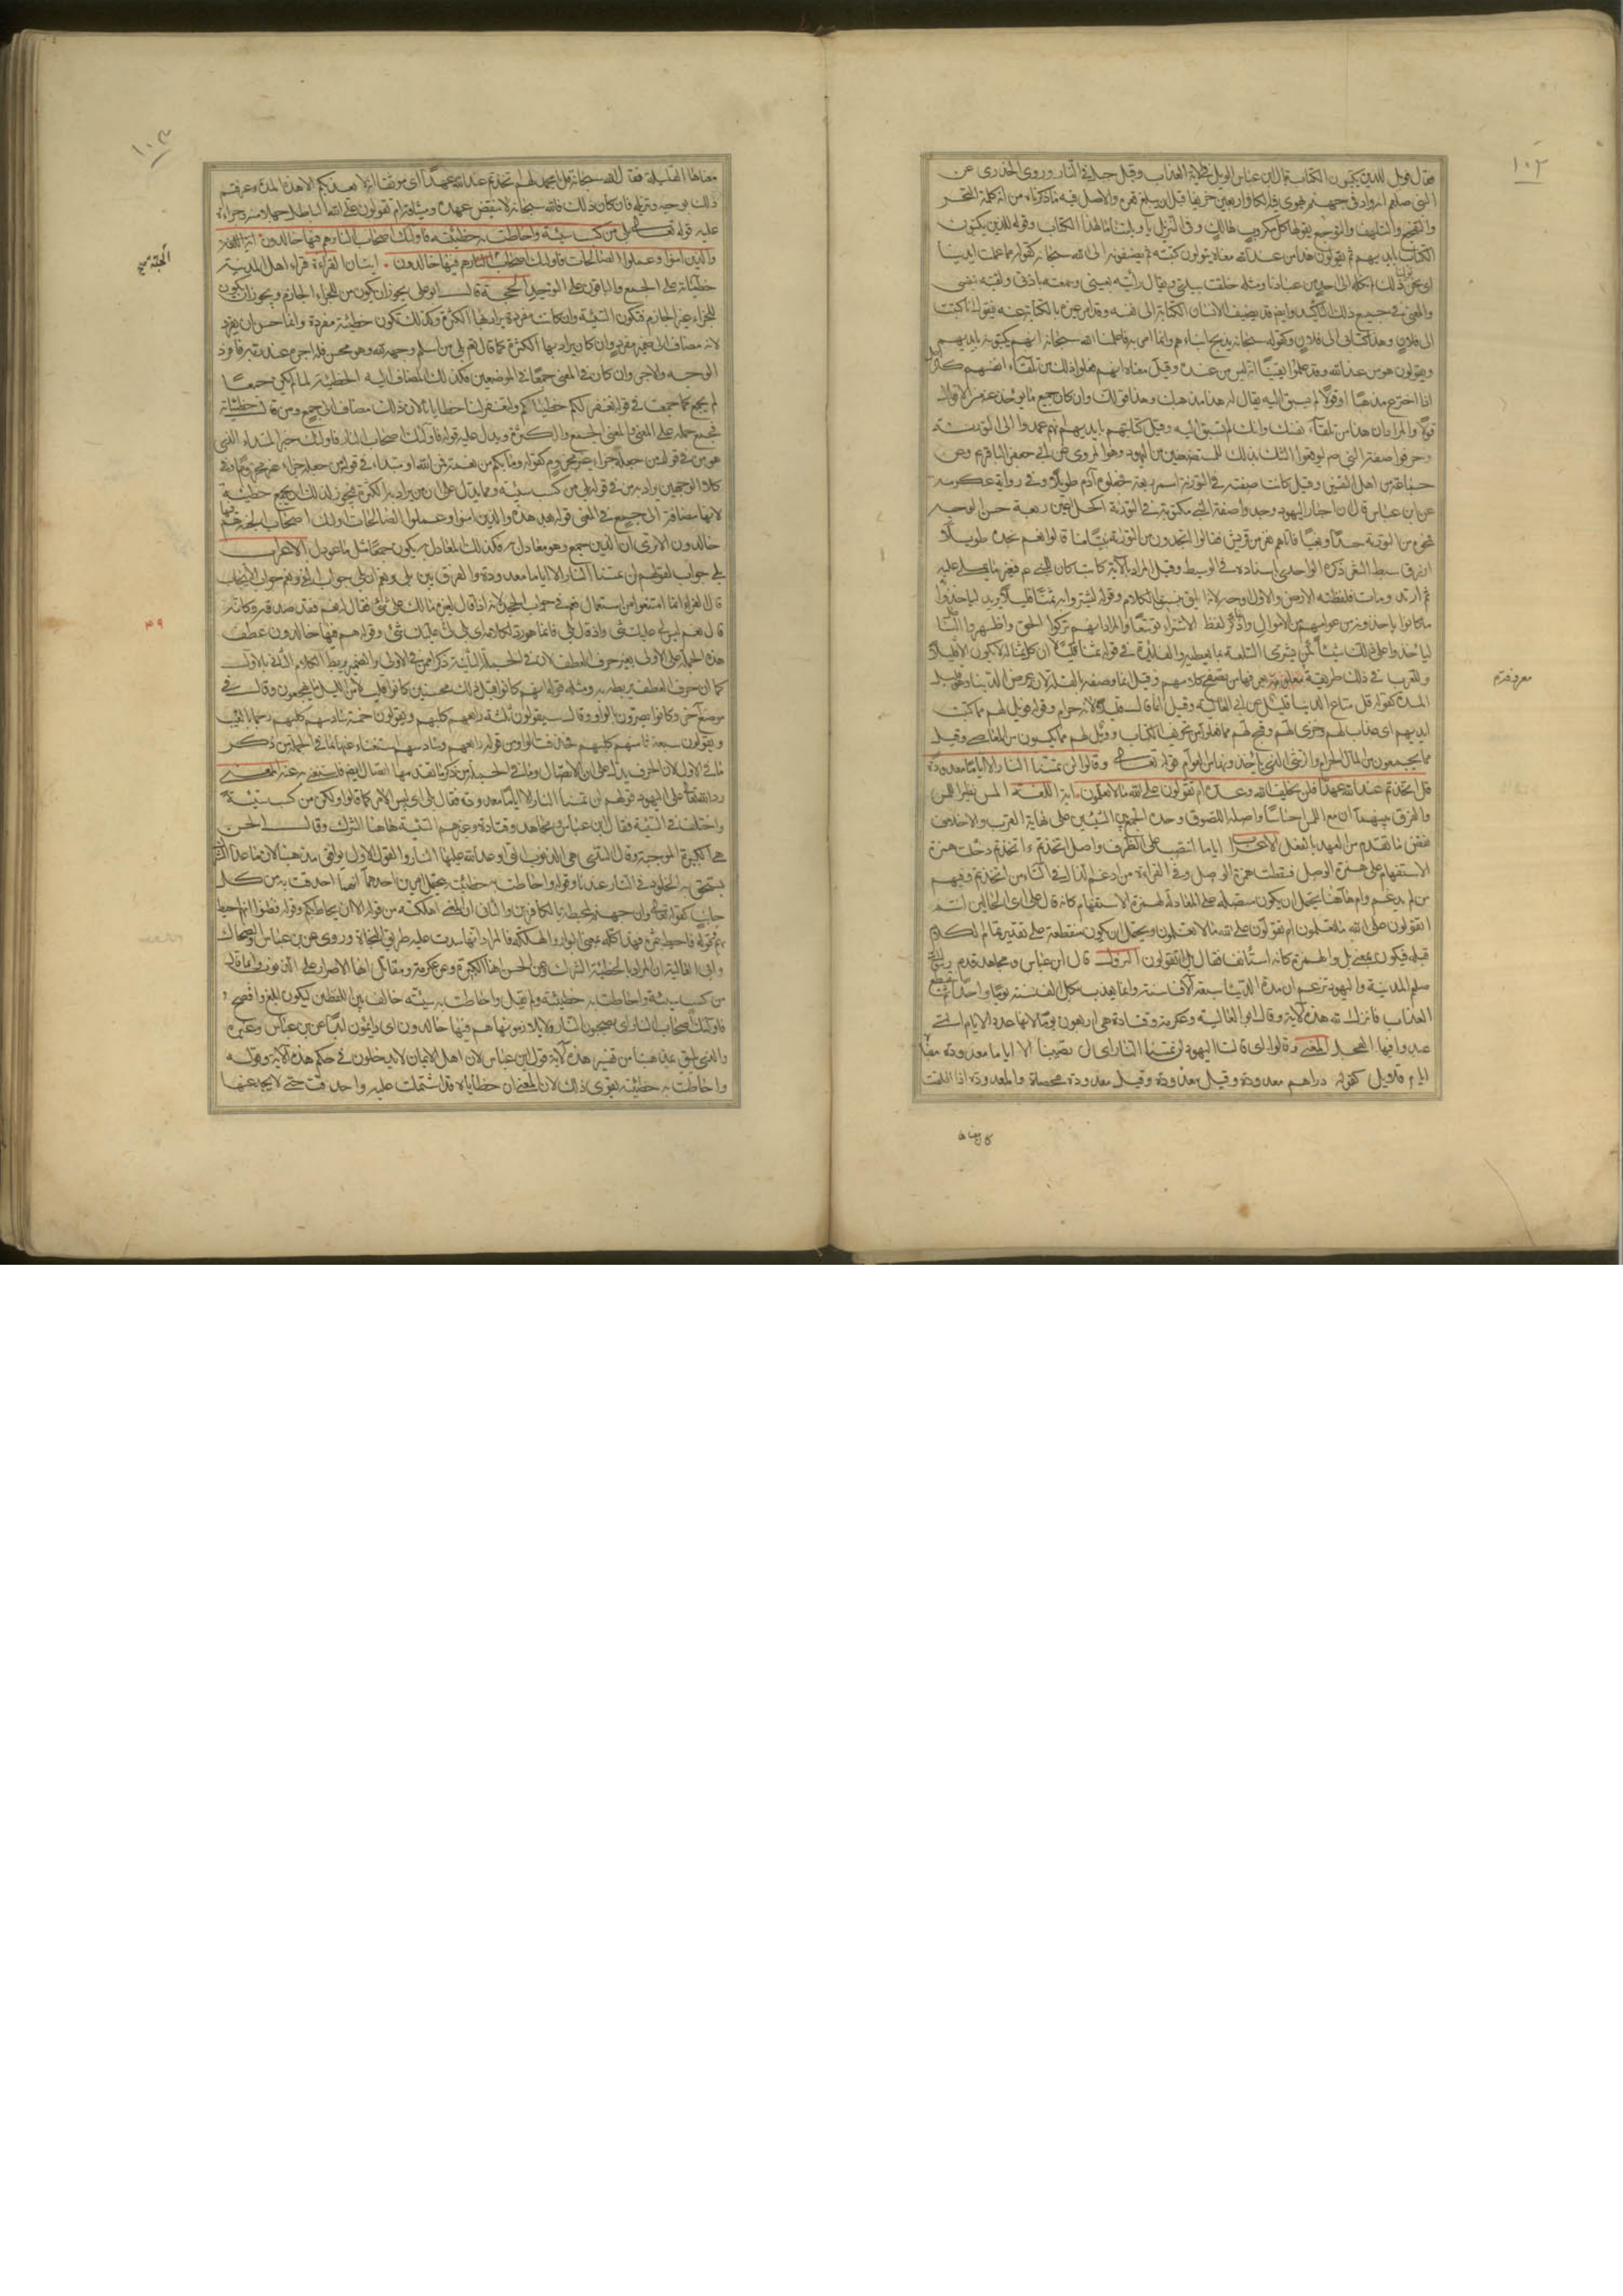 ١٠٢
فقال فويل للذين يكتبون الكتاب قال ابن عباس الويل في الآية العذاب وقيل جبل في النار وروى الخدري عن
النبي صلعم انه واد في جهنم يهوي فيه الكافر اربعين خريفا قبل ان يبلغ قعره والاصل فيه ما ذكرناه من انه كلمة التحسر
والتفجع والتلهف والتوجع يقولها كل مكروب هالك وفي التنزيل يا ويلتنا ما لهذا الكتاب وقوله للذين يكتبون
الكتاب بايديهم ثم يقولون هذا من عند الله معناه يتولون كتبته ثم يضيفونه الى الله سبحانه كقوله مما عملت ايدينا
اي نحن تولينا ذلك ولم نكله الى احد من عبادنا ومثله خلقت بيدي ويقال رأيته بعيني وسمعته باذني ولقيته بنفسي
والمعنى في جميع ذلك التأكيد وايضا قد يضيف الانسان الكتابة الى نفسه وقد امر غيره بالكتابة عنه فيقول انا كتبت
الى فلان وهذا كتابي الى فلان وكقوله سبحانه يذبح ابناءهم وانما امر به فاعلمنا الله سبحانه انهم يكتبونه بايديهم
ويقولون هو من عند الله وقد علموا يقينا انه ليس من عنده وقيل معناه انهم فعلوا ذلك من تلقاء انفسهم كالرجل
اذا اخترع مذهبا او قولا لم يسبق اليه يقال له هذا مذهبك وهذا قولك وان كان جميع ما يؤخذ عنه من الاقوال
قوله والمراد ان هذا من تلقاء نفسك وانك لم تسبق اليه وقيل كتابتهم بايديهم انهم عمدوا الى التورية
وحرفوا صفة النبي ص ليوقعوا الشك بذلك للمستضعفين من اليهود وهو المروي عن ابي جعفر الباقر ع وعن
جماعة من اهل التفسير وقيل كانت صفته في التورية اسمر ربعة فجعلوه آدم طويلا وفي رواية عكرمة
عن ابن عباس قال ان احبار اليهود وجدوا صفة النبي مكتوبة في التورية اكحل اعين ربعة حسن الوجه
فمحوه من التورية حسدا وبغيا فاتاهم نفر من قريش فقالوا اتجدون في التورية نبيا منا قالوا نعم نجده طويلا
ازرق سبط الشعر ذكره الواحدي باسناده في الوسيط وقيل المراد بالآية كاتب كان للنبي ص فيغير ما يملى عليه
ثم ارتد ومات فلفظته الارض والاول اوجه لانه اليق بنسق الكلام وقوله ليشتروا به ثمنا قليلا يريد ليأخذوا
ما كانوا يأخذونه من عوامهم من الاموال وانما ذكر لفظ الاشتراء توسعا والمراد انهم تركوا الحق واظهروا الباطل
ليأخذوا على ذلك شيئا كمن يشتري السلعة بما يعطيه والفائدة في قوله ثمنا قليلا ان كل ثمن له لا يكون الا قليلا
وللعرب في ذلك طريقة معروفة يعرفها من تصفح كلامهم وقيل انما وصفه بالقلة لانه عرض الدنيا وهو قليل
المدة كقوله قل متاع الدنيا قليل عن ابي العالية وقيل انما قال قليل لانه حرام وقوله فويل لهم مما كتبت
ايديهم اي عذاب لهم وخزي لهم وقبح لهم مما فعلوا من تحريف الكتاب وويل لهم مما يكسبون من المعاصي وقيل
مما يجمعون من المال الحرام والرشى التي يأخذونها من العوام قوله تعالى وقالوا لن تمسنا النار الا اياما معدودة
قل اتخذتم عند الله عهدا فلن يخلف الله وعده ام تقولون على الله ما لا تعلمون آية اللغة المس نظير اللمس
والفرق بينهما ان مع اللمس احساسا واصله اللصوق وحده الجمع بين الشيئين على نهاية القرب والاخلاف
نقض ما تقدم من العهد بالفعل الاعراب اياما انتصب على الظرف واصل اتخذتم ءاتخذتم دخلت همزة
الاستفهام على همزة الوصل فسقطت همزة الوصل وفي القراءة من ادغم الذال في التاء من اتخذتم وفيهم
من لم يدغم وام هاهنا يحتمل ان يكون متصلة على المعادلة لهمزة الاستفهام كانه قال على اي الحالين انتم
اتقولون على الله ما تعلمون ام تقولون على الله ما لا تعلمون ويحتمل ان يكون منقطعة على تقدير تمام الكلام
قبله فيكون بمعنى بل والهمزة كانه استأنف فقال بل اتقولون النزول قال ابن عباس ومجاهد قدم رسول الله
صلعم المدينة واليهود تزعم ان مدة الدنيا سبعة آلاف سنة وانما يعذب بكل الف سنة يوما واحدا ثم ينقطع
العذاب فانزل الله هذه الآية وقال ابو العالية وعكرمة وقتادة هي اربعون يوما لانها عدة الايام التي
عبدوا فيها العجل المعنى وقالوا اي قالت اليهود لن تمسنا النار اي لن تصيبنا الا اياما معدودة معناه
ايام قلايل كقوله دراهم معدودة وقيل معدودة وقيل معدودة محصاة والمعدودة اذا اطلقت
١٠٣
معناها القليلة فقال الله سبحانه قل يا محمد لهم اتخذتم عند الله عهدا اي موثقا انه لا يعذبكم الا هذه المدة وعرفتم
ذلك بوحيه وتنزيله فان كان ذلك فالله سبحانه لا ينقض عهده وميثاقه ام تقولون على الله الباطل جهلا منكم وجراءة
عليه قوله تعالى بلى من كسب سيئة واحاطت به خطيئته فاولئك اصحاب النار هم فيها خالدون
والذين آمنوا وعملوا الصالحات فاولئك اصحاب الجنة هم فيها خالدون آيتان القراءة قراء اهل المدينة
الجنة صح
خطيئاته على الجمع والباقون على التوحيد الحجة قال ابو علي يجوز ان يكون من للجزاء الجازم ويجوز ان يكون
للجزاء غير الجازم فتكون السيئة وان كانت مفردة يراد بها الكثرة وكذلك تكون خطيئة مفردة وانما حسن ان يفرد
لانه مضاف الى ضمير مفرد وان كان يراد بها الكثرة كما قال تعالى بلى من اسلم وجهه لله وهو محسن فله اجره عند ربه فافرد
الوجه والاجر وان كان في المعنى جمعا في الموضعين فكذلك المضاف اليه الخطيئة لما لم يكن جمعا
لم يجمع كما جمعت في قوله نغفر لكم خطاياكم وليغفر لنا خطايانا لان ذلك مضاف الى جمع ومن قال خطيئاته
فجمع حمله على المعنى والمعنى الجمع والكثرة ويدل عليه قوله فاولئك اصحاب النار فاولئك خبر المبتداء الذي
هو من في قول من جعله جزاء غير مجزوم كقوله وما بكم من نعمة فمن الله او مبتداء في قول من جعله جزاء مجزوما وفي
كلا الوجهين يراد به من في قوله بلى من كسب سيئة ومما يدل على ان من يراد به الكثرة فيجوز لذلك ان يجمع خطيئة
لانها مضافة الى جمع في المعنى قوله بعد هذه والذين آمنوا وعملوا الصالحات اولئك اصحاب الجنة هم فيها
خالدون الا ترى ان الذين جمع وهو معادل به فكذلك المعادل به يكون جمعا مثل ما عودل الاعراب
بلى جواب لقولهم لن تمسنا النار الا اياما معدودة والفرق بين بلى ونعم ان بلى جواب النفي ونعم جواب الايجاب
قال الفراء انما امتنعوا من استعمال نعم في جواب الجحد لانه اذا قال لغيره ما لك علي شيء فقال له نعم فقد صدقه وكانه
٣٩
قال نعم ليس لي عليك شيء واذا قال بلى فانما هو رد لكلامه اي بلى لي عليك شيء وقوله هم فيها خالدون عطف
هذه الجملة على الاولى بغير حرف العطف لان في الجملة الثانية ذكر ممن في الاولى والضمير يربط الكلام الثاني بالاول
كما ان حرف العطف يربطه به ومثله قوله انهم كانوا قبل ذلك محسنين كانوا قليلا من الليل ما يهجعون وقال في
موضع آخر وكانوا يصرون بالواو وقال سيقولون ثلثة رابعهم كلبهم ويقولون خمسة سادسهم كلبهم رجما بالغيب
ويقولون سبعة وثامنهم كلبهم فحذف الواو من قوله رابعهم وسادسهم استغناء عنها بما في الجملة من ذكر
ما في الاول لان الحرف يدل على الاتصال وما في الجملة من ذكر ما تقدمها اتصال ايضا فاستغنى به عنه المعنى
رد الله تعالى على اليهود قولهم لن تمسنا النار الا اياما معدودة فقال بلى اي ليس الامر كما قالوا ولكن من كسب سيئة
واختلف في السيئة فقال ابن عباس ومجاهد وقتادة وغيرهم السيئة هاهنا الشرك وقال الحسن
هي الكبيرة الموجبة وقال السدي هي الذنوب التي اوعد الله عليها النار والقول الاول يوافق مذهبنا لان ما عدا الشرك لا
يستحق به الخلود في النار عندنا وقوله واحاطت به خطيئته يحتمل امرين احدهما انها احدقت به من كل
جانب كقوله تعالى وان جهنم لمحيطة بالكافرين والثاني ان المعنى اهلكته من قوله الا ان يحاط بكم وقوله وظنوا انهم احيط
بهم وقوله واحيط بثمره فهذا كله بمعنى البوار والهلكة فالمراد انها سدت عليه طريق النجاة وروي عن ابن عباس والضحاك
وابي العالية ان المراد بالخطيئة الشرك وعن الحسن انها الكبيرة وعن عكرمة ومقاتل انها الاصرار على الذنوب وانما قال
من كسب سيئة واحاطت به خطيئته ولم يقل واحاطت به سيئته خالف بين اللفظين ليكون ابلغ وافصح
فاولئك اصحاب النار اي يصحبون النار ويلازمونها هم فيها خالدون اي دايمون ابدا عن ابن عباس وغيره
والذي يليق بمذهبنا من تفسير هذه الآية قول ابن عباس لان اهل الايمان لا يدخلون في حكم هذه الآية وقوله
واحاطت به خطيئته يقوي ذلك لان المعنى ان خطاياه قد اشتملت عليه واحدقت حتى لا يجد عنها